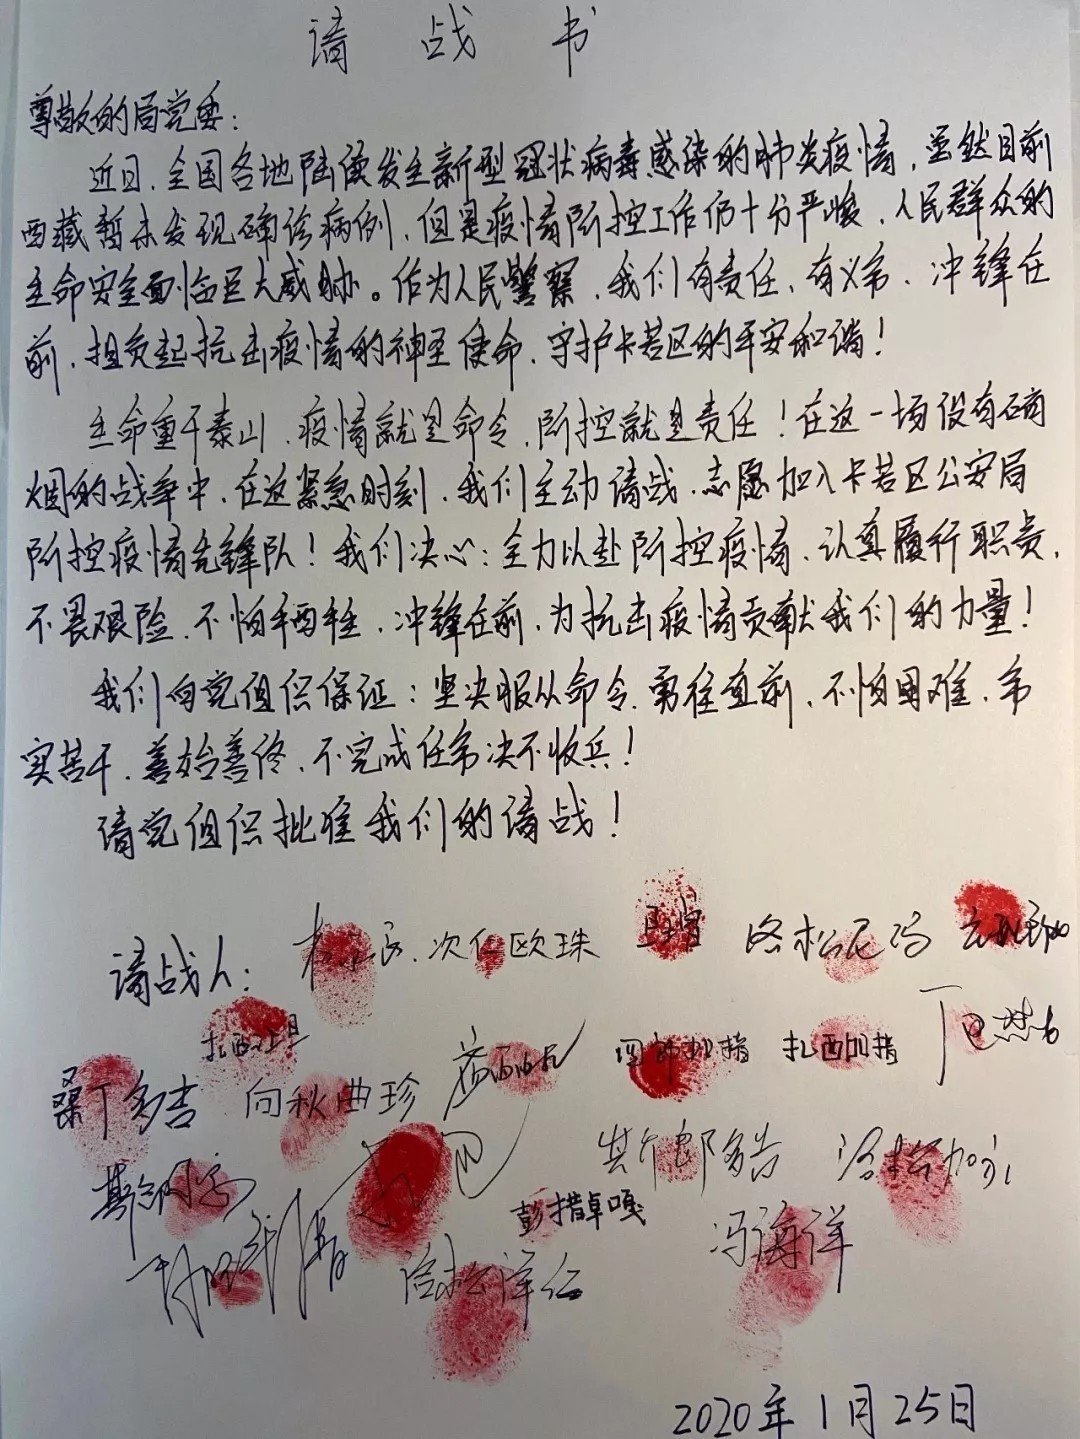 请战书
尊敬的局党委：
近日，全国各地陆续发生新型冠状病毒感染的肺炎疫情，虽然目前
西藏暂未发现确诊病例，但是疫情防控工作仍十分严峻，人民群众的
生命安全面临巨大威胁。作为人民警察，我们有责任，有义务，冲锋在
前，担负起抗击疫情的神圣使命，守护卡若区的平安和谐！
生命重于泰山，疫情就是命令，防控就是责任！在这一场没有硝
烟的战争中，在这紧急时刻，我们主动请战，志愿加入卡若区公安局
防控疫情先锋队！我们决心：全力以赴防控疫情，认真履行职责，
不畏艰险，不怕牺牲，冲锋在前，为抗击疫情贡献我们的力量！
我们向党组织保证：坚决服从命令，勇往直前，不怕困难，务
实苦干，善始善终，不完成任务决不收兵！
请党组织批准我们的请战！
请战人： 次仁欧珠 洛松尼玛
扎西加措
桑丁多吉 向秋曲珍
彭措卓嘎 冯海洋
洛松泽仁
2020年1月25日